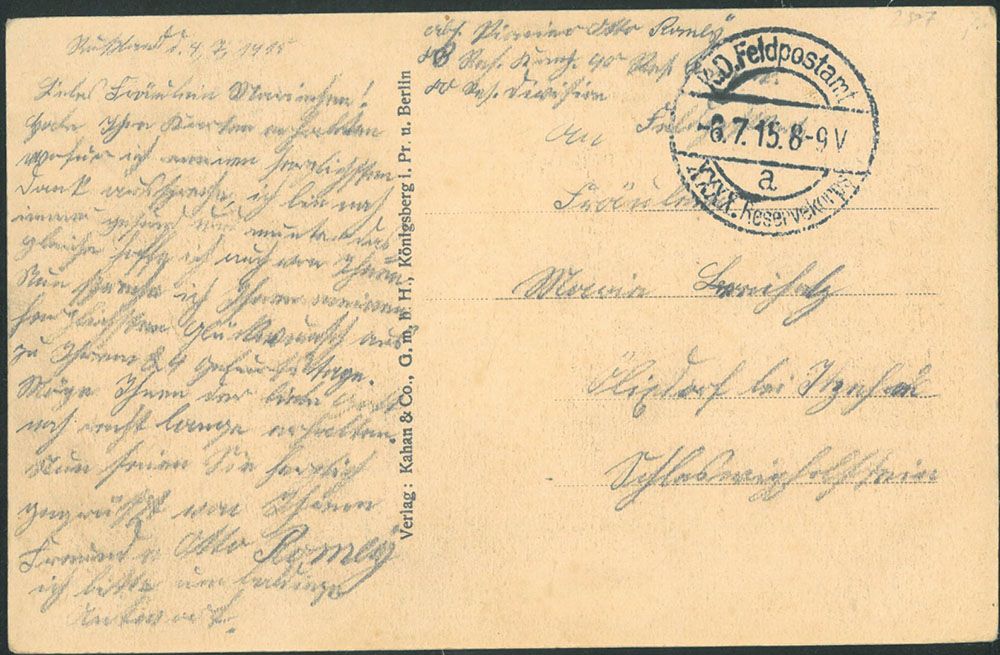 Russland d. 4.7.1915
Liebes Fräulein Mariechen!
Habe Ihre Karten erhalten
wofür ich meinen herzlichsten
Dank ausspreche, ich bin noch
immer gesund und munter das
gleiche hoffe ich auch von Ihnen
Nun spreche ich Ihnen meinen
herzlichsten Glückwunsch aus
zu Ihrem Geburtstage.
Möge Ihnen der liebe Gott
noch recht lange erhalten.
Nun seien Sie herzlich
gegrüßt von Ihrem
Freund Otto Romey
ich bitte um baldige
Antwort.
Verlag: Kahan & Co., G. m. b. H., Königsberg i. Pr. u. Berlin
Abs. Pionier Otto Romey
Res. 90 Res.
80 Res. Division
An
Fräulein
Maria
bei Itzehoe
Schleswigholstein
K.D. Feldpostamt
-6.7.15.8-9V
a
XXXX. Reservekorps